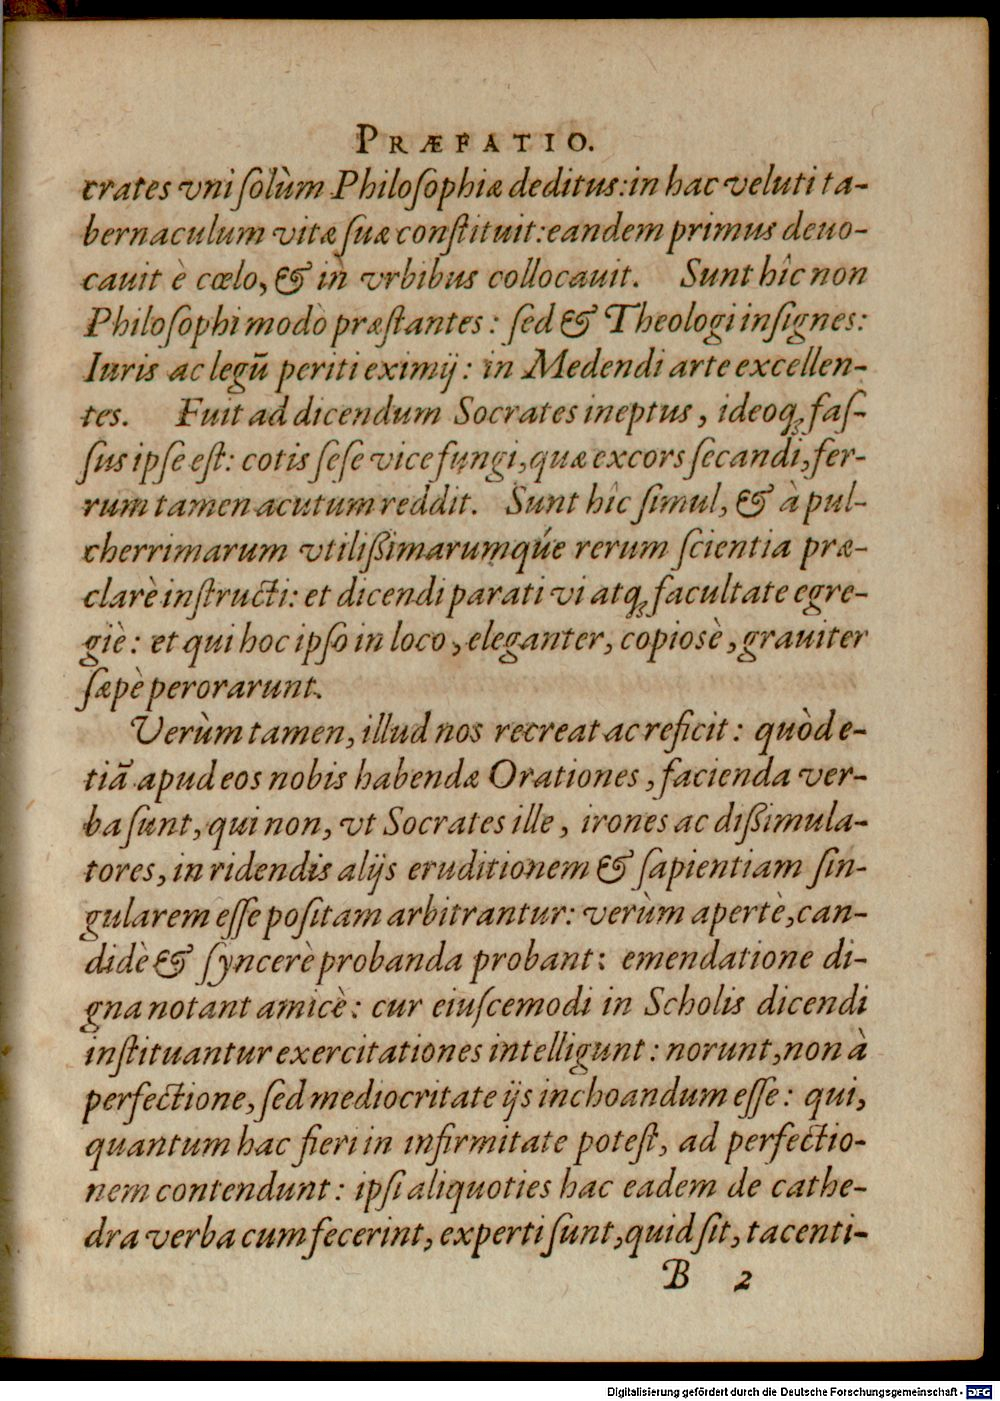 PRÆFATIO.
crates vni ſolùm Philoſophiæ deditus: in hac veluti ta-
bernaculum vitæ ſuæ conſtituit: eandem primus deuo-
cauit è cœlo, & in vrbibus collocauit. Sunt hîc non
Philoſophi modò præſtantes: ſed & Theologi inſignes:
Iuris ac legū periti eximij: in Medendi arte excellen-
tes. Fuit ad dicendum Socrates ineptus, ideoq́ꝫ faſ-
ſus ipſe eſt: cotis ſeſe vice fungi, quæ excors ſecandi, fer-
rum tamen acutum reddit. Sunt hîc ſimul, & à pul-
cherrimarum vtilißimarumqúe rerum ſcientia præ-
clarè inſtructi: et dicendi parati vi atqꝫ facultate egre-
giè: et qui hoc ipſo in loco, eleganter, copiosè, grauiter
ſæpè perorarunt.
Verùm tamen, illud nos recreat ac reficit: quòd e-
tiā apud eos nobis habendæ Orationes, facienda ver-
ba ſunt, qui non, vt Socrates ille, irones ac dißimula-
tores, in ridendis alijs eruditionem & ſapientiam ſin-
gularem eſſe poſitam arbitrantur: verùm apertè, can-
didè & ſyncerè probanda probant: emendatione di-
gna notant amicè: cur eiuſcemodi in Scholis dicendi
inſtituantur exercitationes intelligunt: norunt, non à
perfectione, ſed mediocritate ijs inchoandum eſſe: qui,
quantum hac fieri in infirmitate poteſt, ad perfectio-
nem contendunt: ipſi aliquoties hac eadem de cathe-
dra verba cum fecerint, experti ſunt, quid ſit, tacenti-
B 2
Digitalisierung gefördert durch die Deutsche Forschungsgemeinschaft - DFG